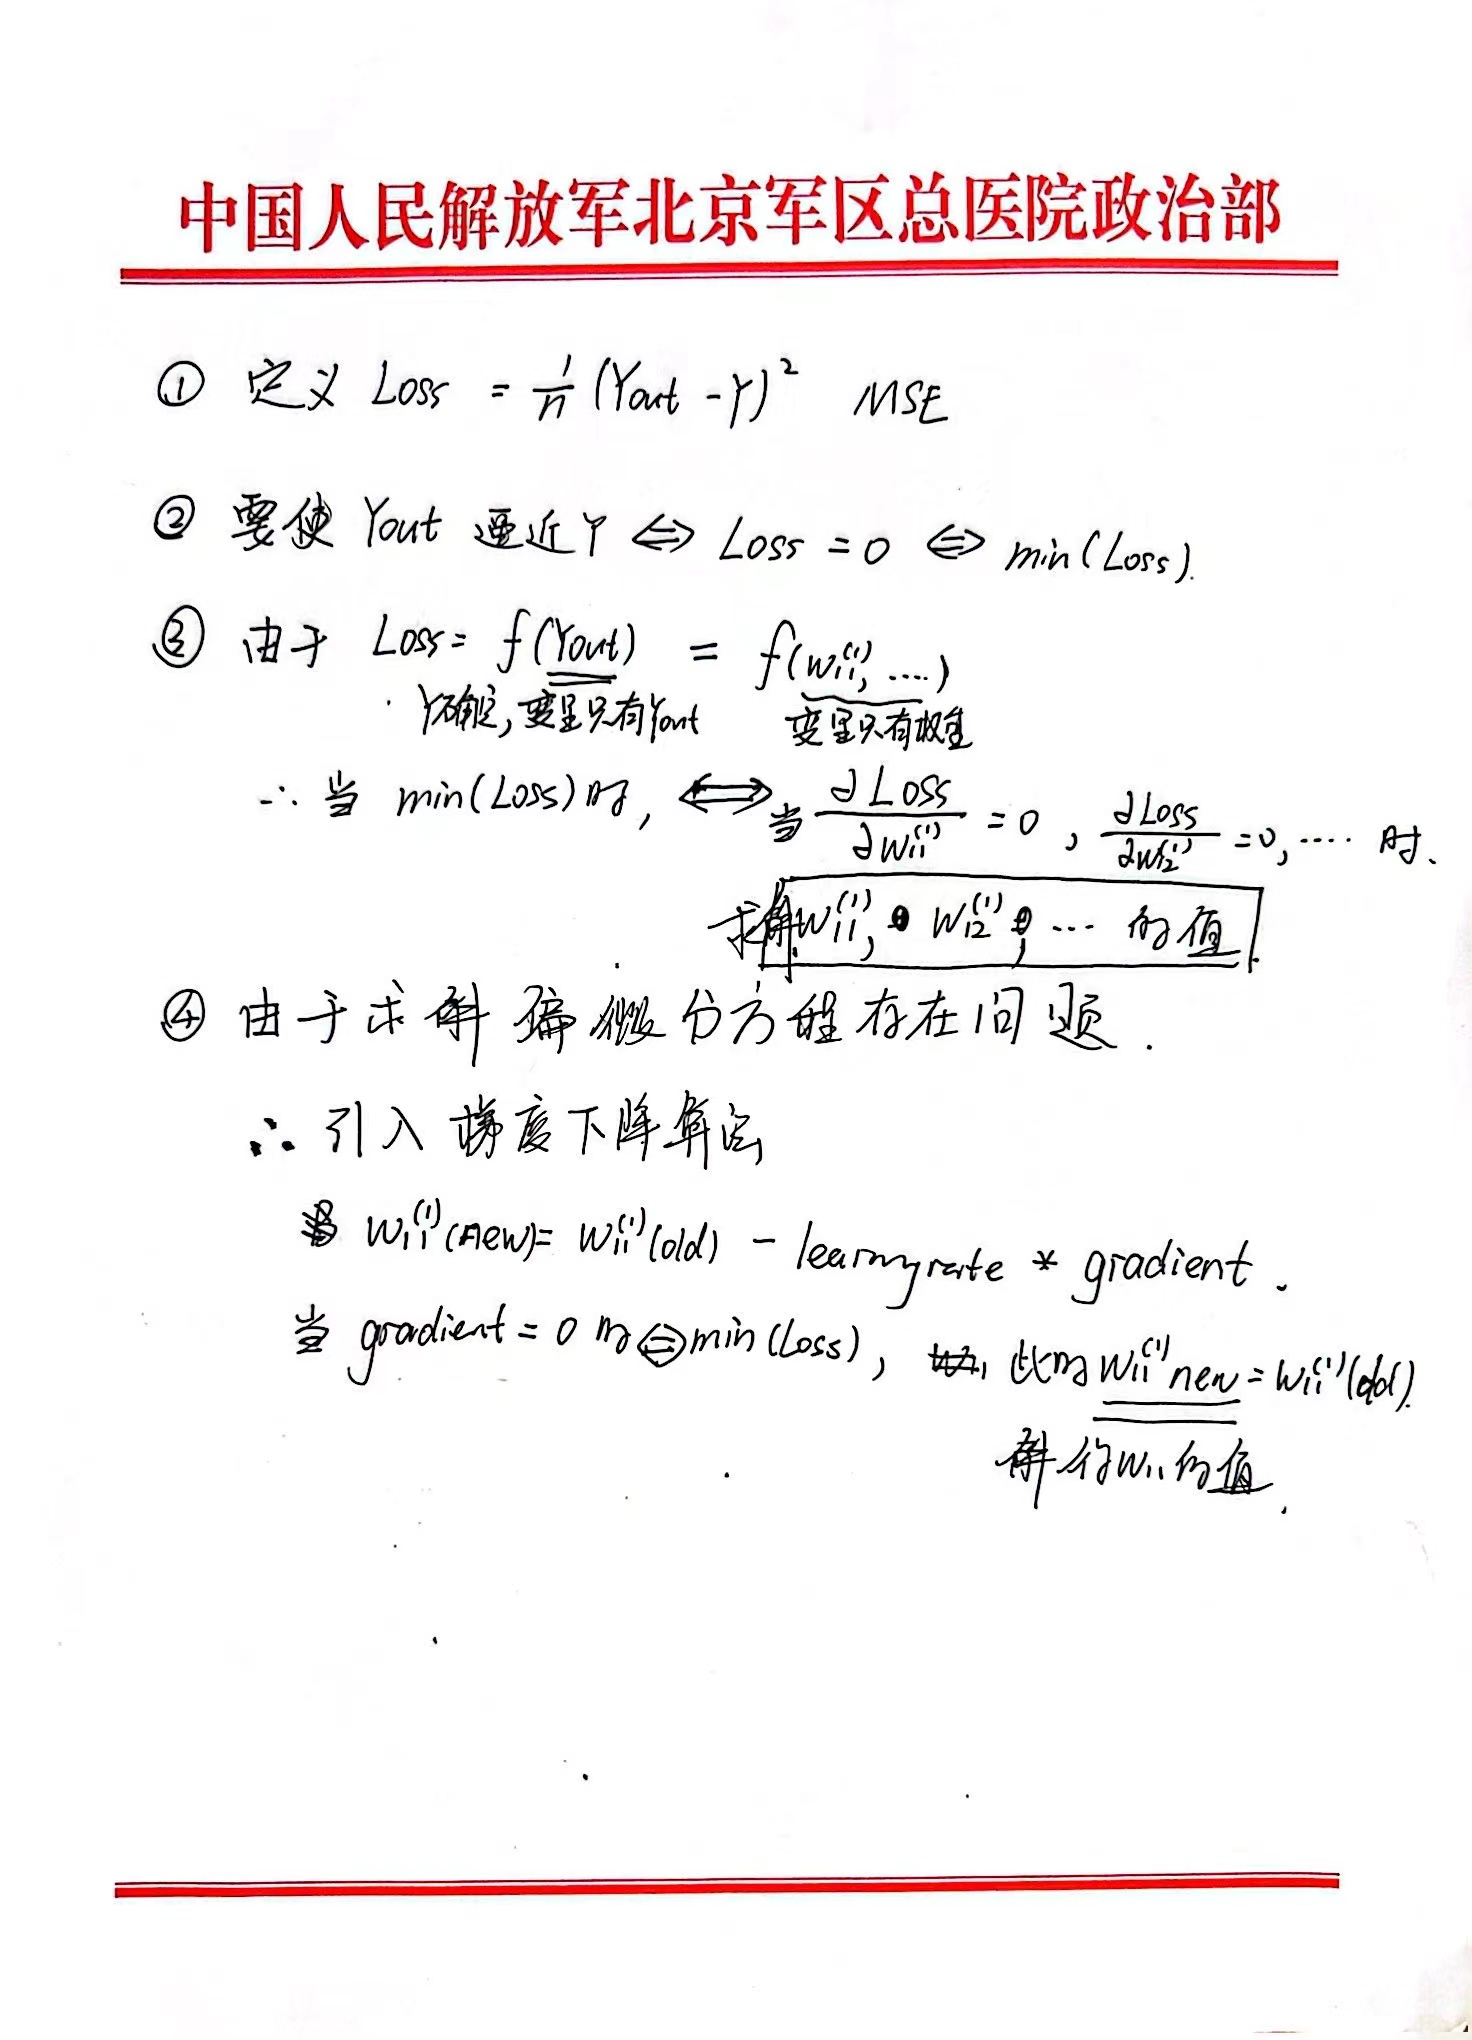 中国人民解放军北京军区总医院政治部
① 定义 Loss = 1/n (Yout - Y)² MSE
② 要使 Yout 逼近Y ⇔ Loss = 0 ⇔ min(Loss).
③ 由于 Loss = f(Yout) = f(W₁₁⁽¹⁾, ....)
Y确定, 变量只有Yout 变量只有权重
∴ 当 min(Loss)时, ⇔ 当 ∂Loss/∂W₁₁⁽¹⁾ = 0 , ∂Loss/∂W₁₂⁽¹⁾ = 0, ···· 时.
求解W₁₁⁽¹⁾, W₁₂⁽¹⁾, ··· 的值.
④ 由于求解偏微分方程存在问题.
∴ 引入梯度下降算法
W₁₁⁽¹⁾(new) = W₁₁⁽¹⁾(old) - learningrate * gradient.
当 gradient = 0 时⇔min(Loss), 此时W₁₁⁽¹⁾new = W₁₁⁽¹⁾(old).
解得W₁₁的值.